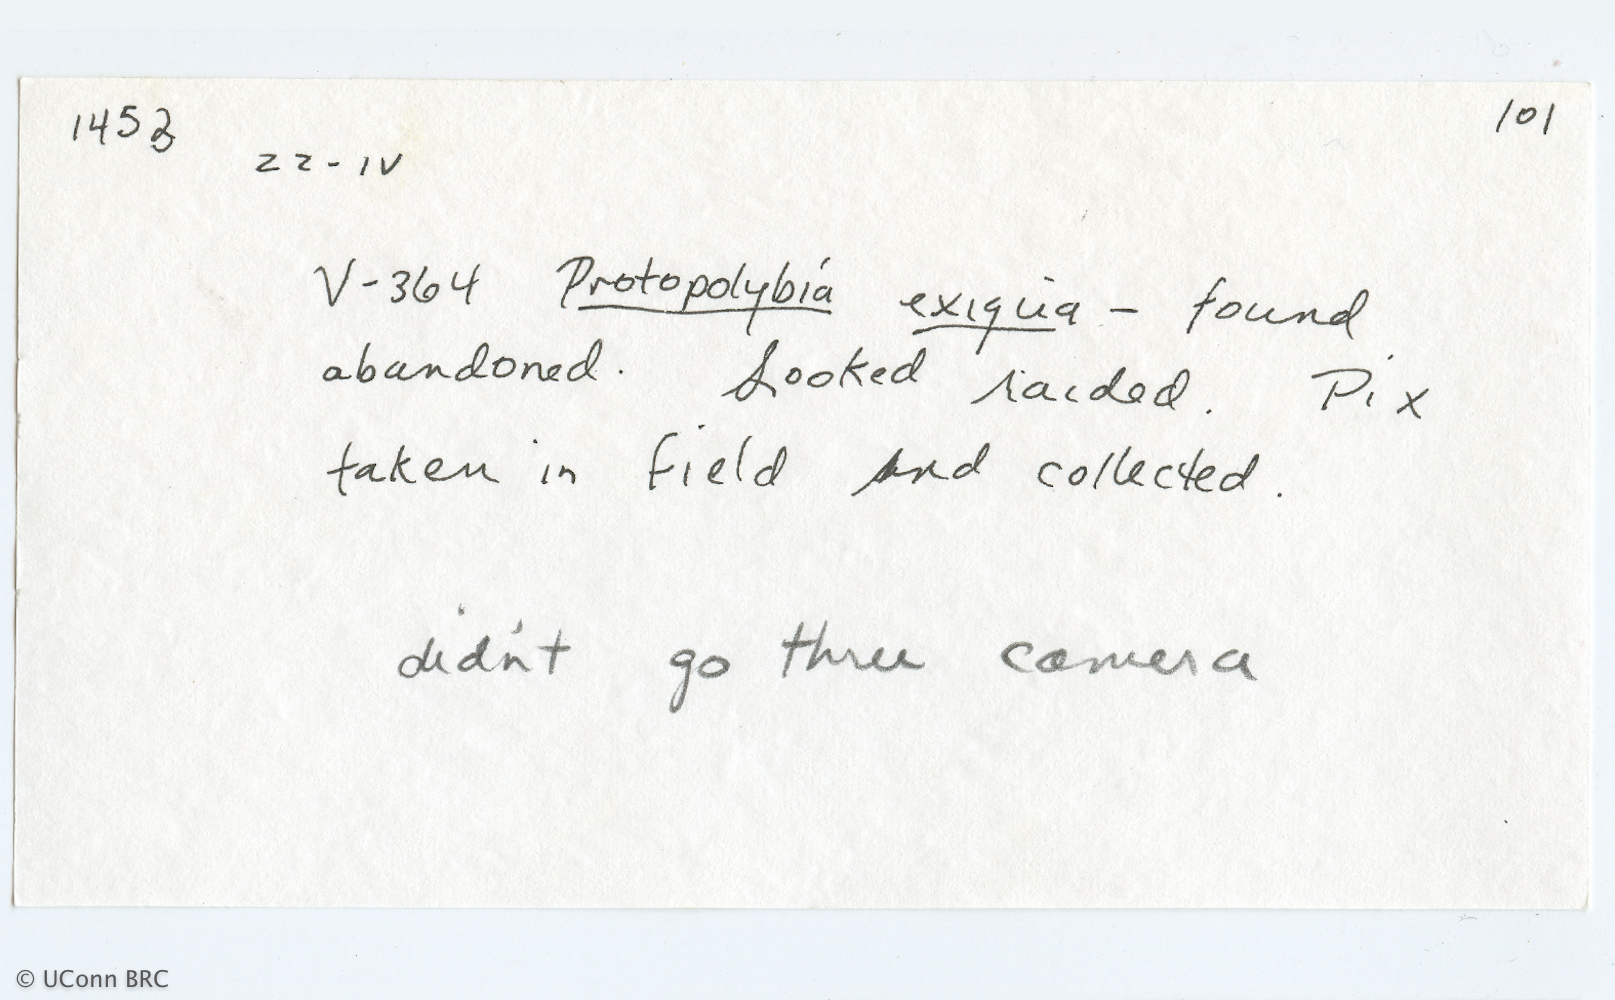 1453 101
22-IV
V-364 Protopolybia exigua - found
abandoned. Looked raided. Pix
taken in field and collected.
didn't go three camera
© UConn BRC